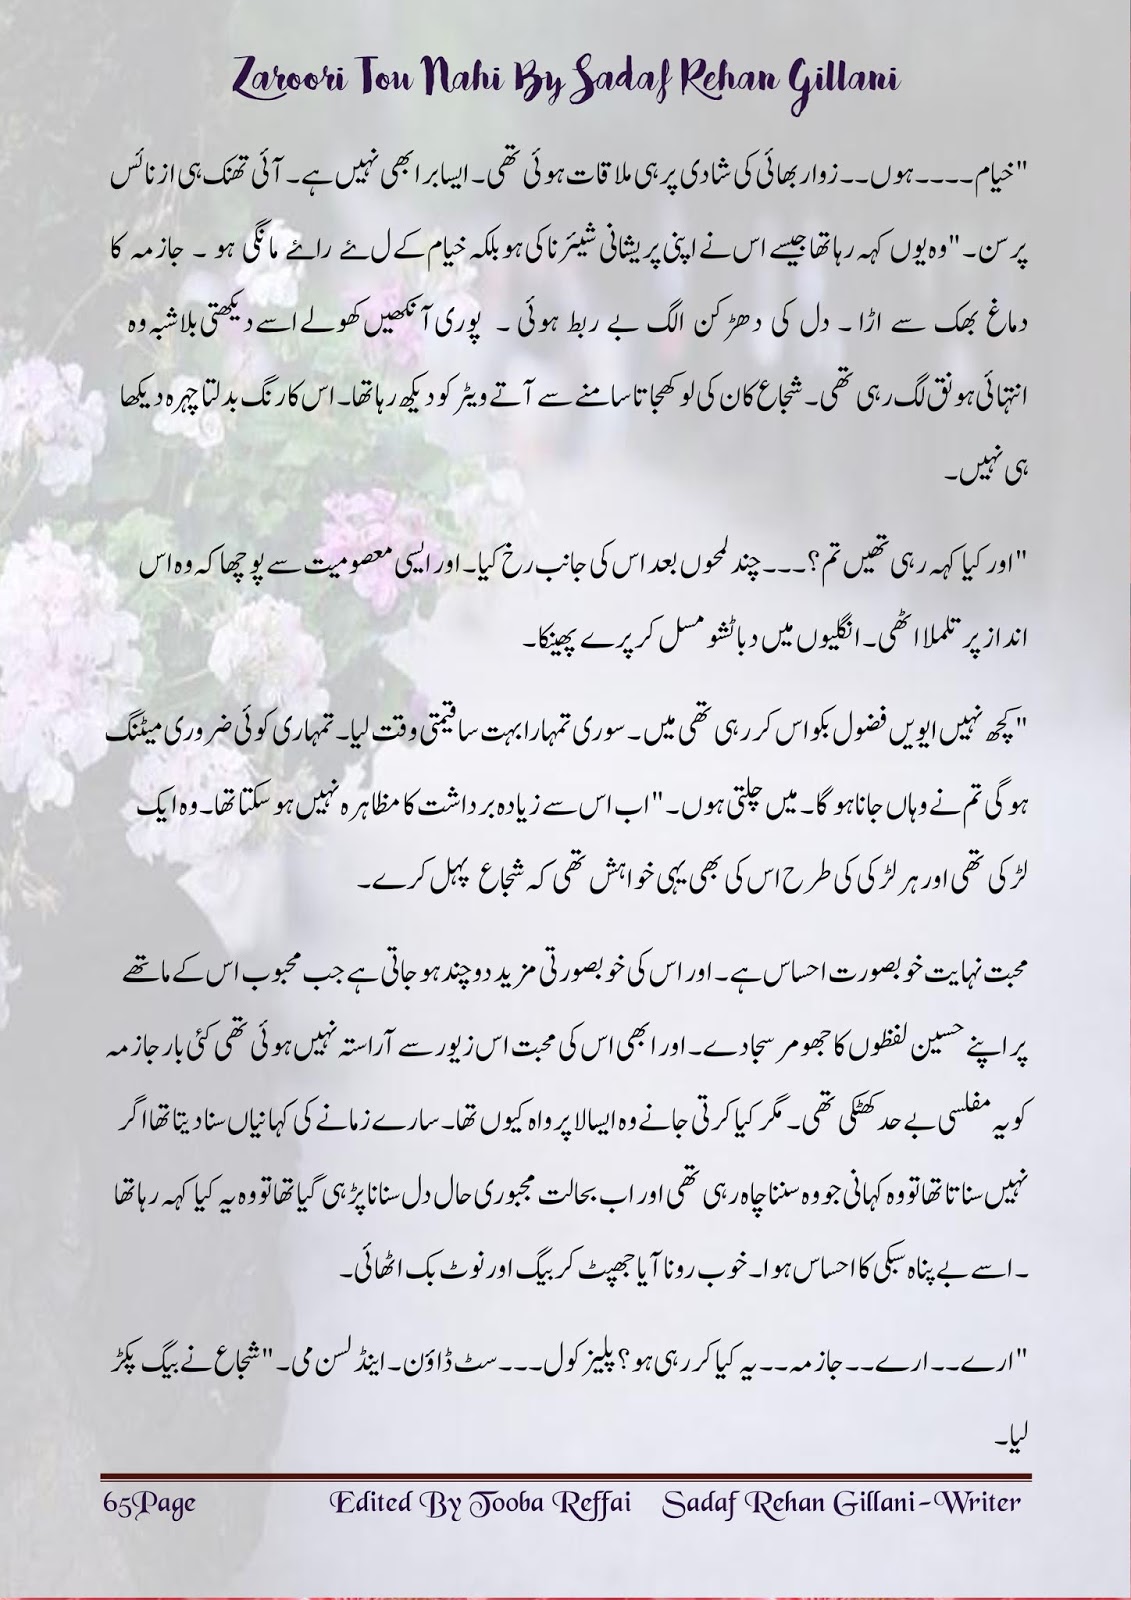 Zaroori Tou Nahi By Sadaf Rehan Gillani
"خیام۔۔۔۔ہوں۔۔زوار بھائی کی شادی پر ہی ملاقات ہوئی تھی۔ایسا برا بھی نہیں ہے۔ آئی تھنک ہی از نائس
پرسن۔"وہ یوں کہہ رہا تھا جیسے اس نے اپنی پریشانی شیئر نا کی ہو بلکہ خیام کے لئے رائے مانگی ہو ۔ جازمہ کا
دماغ بھک سے اڑا ۔ دل کی دھڑکن الگ بے ربط ہوئی ۔ پوری آنکھیں کھولے اسے دیکھتی بلاشبہ وہ
انتہائی ہونق لگ رہی تھی۔شجاع کان کی لو کھجاتا سامنے سے آتے ویٹر کو دیکھ رہا تھا۔اس کا رنگ بدلتا چہرہ دیکھا
ہی نہیں۔
"اور کیا کہہ رہی تھیں تم؟۔۔۔چند لمحوں بعد اس کی جانب رخ کیا۔اور ایسی معصومیت سے پوچھا کہ وہ اس
انداز پر تلملا اٹھی۔انگلیوں میں دبا ٹشو مسل کر پرے پھینکا۔
"کچھ نہیں ایویں فضول بکواس کر رہی تھی میں۔سوری تمہارا بہت سا قیمتی وقت لیا۔تمہاری کوئی ضروری میٹنگ
ہو گی تم نے وہاں جانا ہو گا۔میں چلتی ہوں۔"اب اس سے زیادہ برداشت کا مظاہرہ نہیں ہو سکتا تھا۔وہ ایک
لڑکی تھی اور ہر لڑکی کی طرح اس کی بھی یہی خواہش تھی کہ شجاع پہل کرے۔
محبت نہایت خوبصورت احساس ہے۔اور اس کی خوبصورتی مزید دوچند ہو جاتی ہے جب محبوب اس کے ماتھے
پر اپنے حسین لفظوں کا جھومر سجا دے۔اور ابھی اس کی محبت اس زیور سے آراستہ نہیں ہوئی تھی کئی بار جازمہ
کو یہ مفلسی بے حد کھٹکی تھی۔مگر کیا کرتی جانے وہ ایسا لاپرواہ کیوں تھا۔سارے زمانے کی کہانیاں سنا دیتا تھا اگر
نہیں سناتا تھا تو وہ کہانی جو وہ سننا چاہ رہی تھی اور اب بحالت مجبوری حال دل سنانا پڑ ہی گیا تھا تو وہ یہ کیا کہہ رہا تھا
۔اسے بے پناہ سبکی کا احساس ہوا۔خوب رونا آیا جھپٹ کر بیگ اور نوٹ بک اٹھائی۔
"ارے۔۔ارے۔۔جازمہ۔۔یہ کیا کر رہی ہو؟پلیز کول۔۔۔سٹ ڈاؤن۔اینڈ لسن می۔"شجاع نے بیگ پکڑ
لیا۔
65Page Edited By Tooba Reffai Sadaf Rehan Gillani-Writer